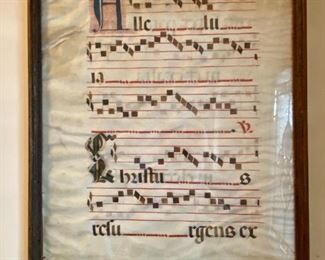 Alle lu
ia
℣.
Christu s
resu rgens ex